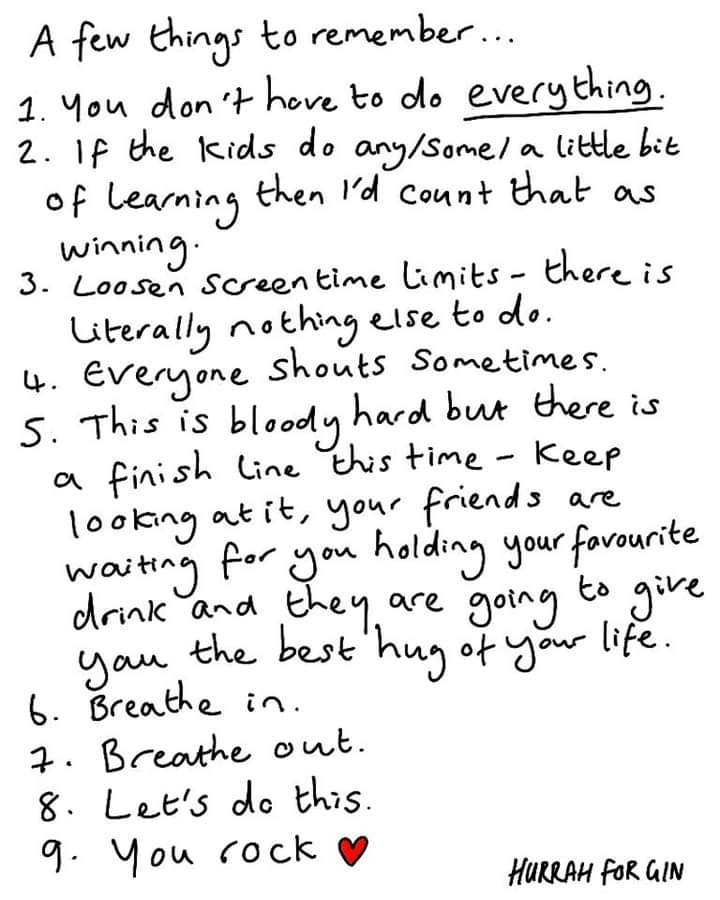 A few things to remember...
1. You don't have to do everything.
2. If the kids do any/some/a little bit
of learning then I'd count that as
winning.
3. Loosen screentime limits - there is
literally nothing else to do.
4. Everyone shouts sometimes.
5. This is bloody hard but there is
a finish line this time - keep
looking at it, your friends are
waiting for you holding your favourite
drink and they are going to give
you the best hug of your life.
6. Breathe in.
7. Breathe out.
8. Let's do this.
9. You rock ❤
HURRAH FOR GIN